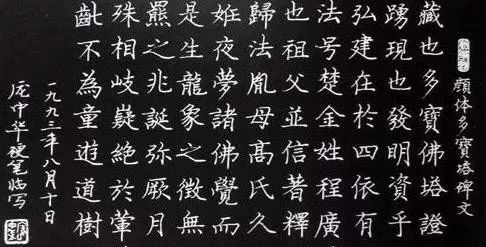 顏体多寶塔碑文
藏也多寶佛塔證
踴現也發明資乎
弘建在於四依有
法号楚金姓程廣
也祖父並信著釋
歸法胤母髙氏久
姙夜夢諸佛覺而
是生龍象之徵無
羆之兆誕弥厥月
殊相岐嶷絕於葷
齔不為童遊道樹
一九九三年八月十日
庞中华硬笔临写